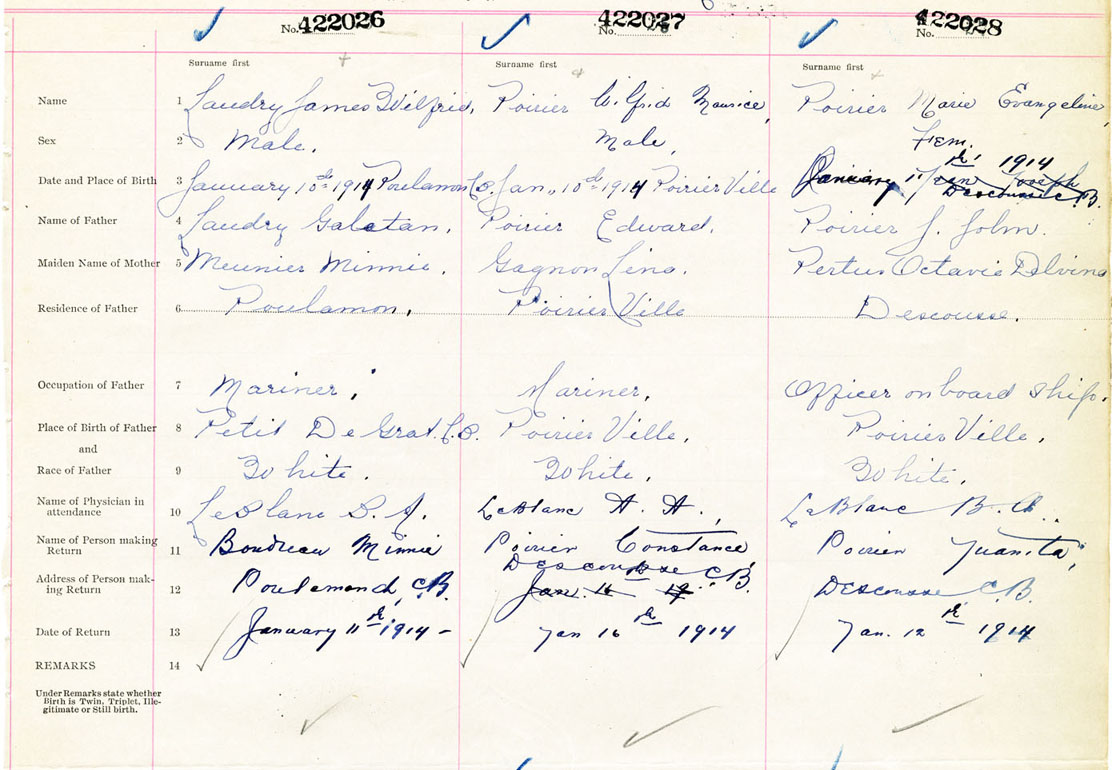 No. 422026 No. 422027 No. 422028
Surname first Surname first Surname first
Name 1 Landry James Wilfrid, Poirier Wilfrid Maurice, Poirier Marie Evangeline,
Sex 2 Male. Male, Fem.
Date and Place of Birth 3 January 10th 1914 Poulamon C.B. Jan., 10th 1914 Poirier Ville January 11th 1914 Descousse C.B.
Name of Father 4 Landry Galatan. Poirier Edward. Poirier J. John.
Maiden Name of Mother 5 Meunier Minnie. Gagnon Lina. Pertus Octavie Delvina
Residence of Father 6 Poulamon. Poirier Ville Descousse.
Occupation of Father 7 Mariner. Mariner. Officer on board Ship.
Place of Birth of Father 8 Petit De Grat. C.B. Poirier Ville. Poirier Ville.
and
Race of Father 9 White. White. White.
Name of Physician in
attendance 10 LeBlanc B. A. LeBlanc A. A., LeBlanc B. A.
Name of Person making
Return 11 Boudreau Minnie Poirier Constance Poirier Juanita,
Address of Person mak-
ing Return 12 Poulamond, C.B. Descousse C.B. Jan. 16 Descousse C.B.
Date of Return 13 January 11th, 1914 – Jan 16th 1914 Jan. 12th 1914
REMARKS 14
Under Remarks state whether
Birth is Twin, Triplet, Ille-
gitimate or Still birth.